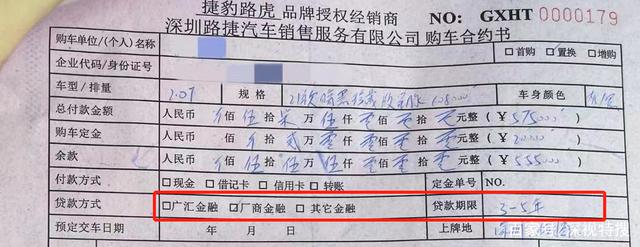 捷豹路虎 品牌授权经销商 NO: GXHT 0000179
深圳路捷汽车销售服务有限公司 购车合约书
购车单位/(个人)名称 □首购 □置换 □增购
企业代码/身份证号
车型/排量 2.0T 规格 车身颜色
总付款金额 人民币 仟 佰 伍 拾 柒 万 伍 仟 零 佰 零 拾 零 元整 (¥ 575000)
购车定金 人民币 仟 佰 拾 贰 万 零 仟 零 佰 零 拾 零 元整 (¥ 20000)
余款 人民币 仟 佰 伍 拾 伍 万 伍 仟 零 佰 零 拾 零 元整 (¥ 555000)
付款方式 □现金 □借记卡 □信用卡 □转账 定金单号 NO.
贷款方式 □广汇金融 □厂商金融 □其它金融 贷款期限 3-5年
预定交车日期 年 月 日 上牌地